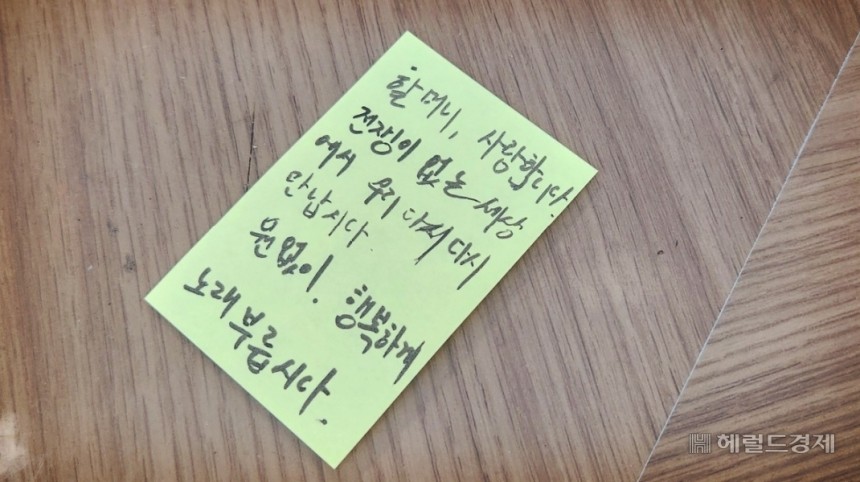 할머니, 사랑합니다.
전쟁이 없는 세상
에서 우리 다시 다시
만납시다.
원없이. 행복하게
노래 부릅시다.
헤럴드경제